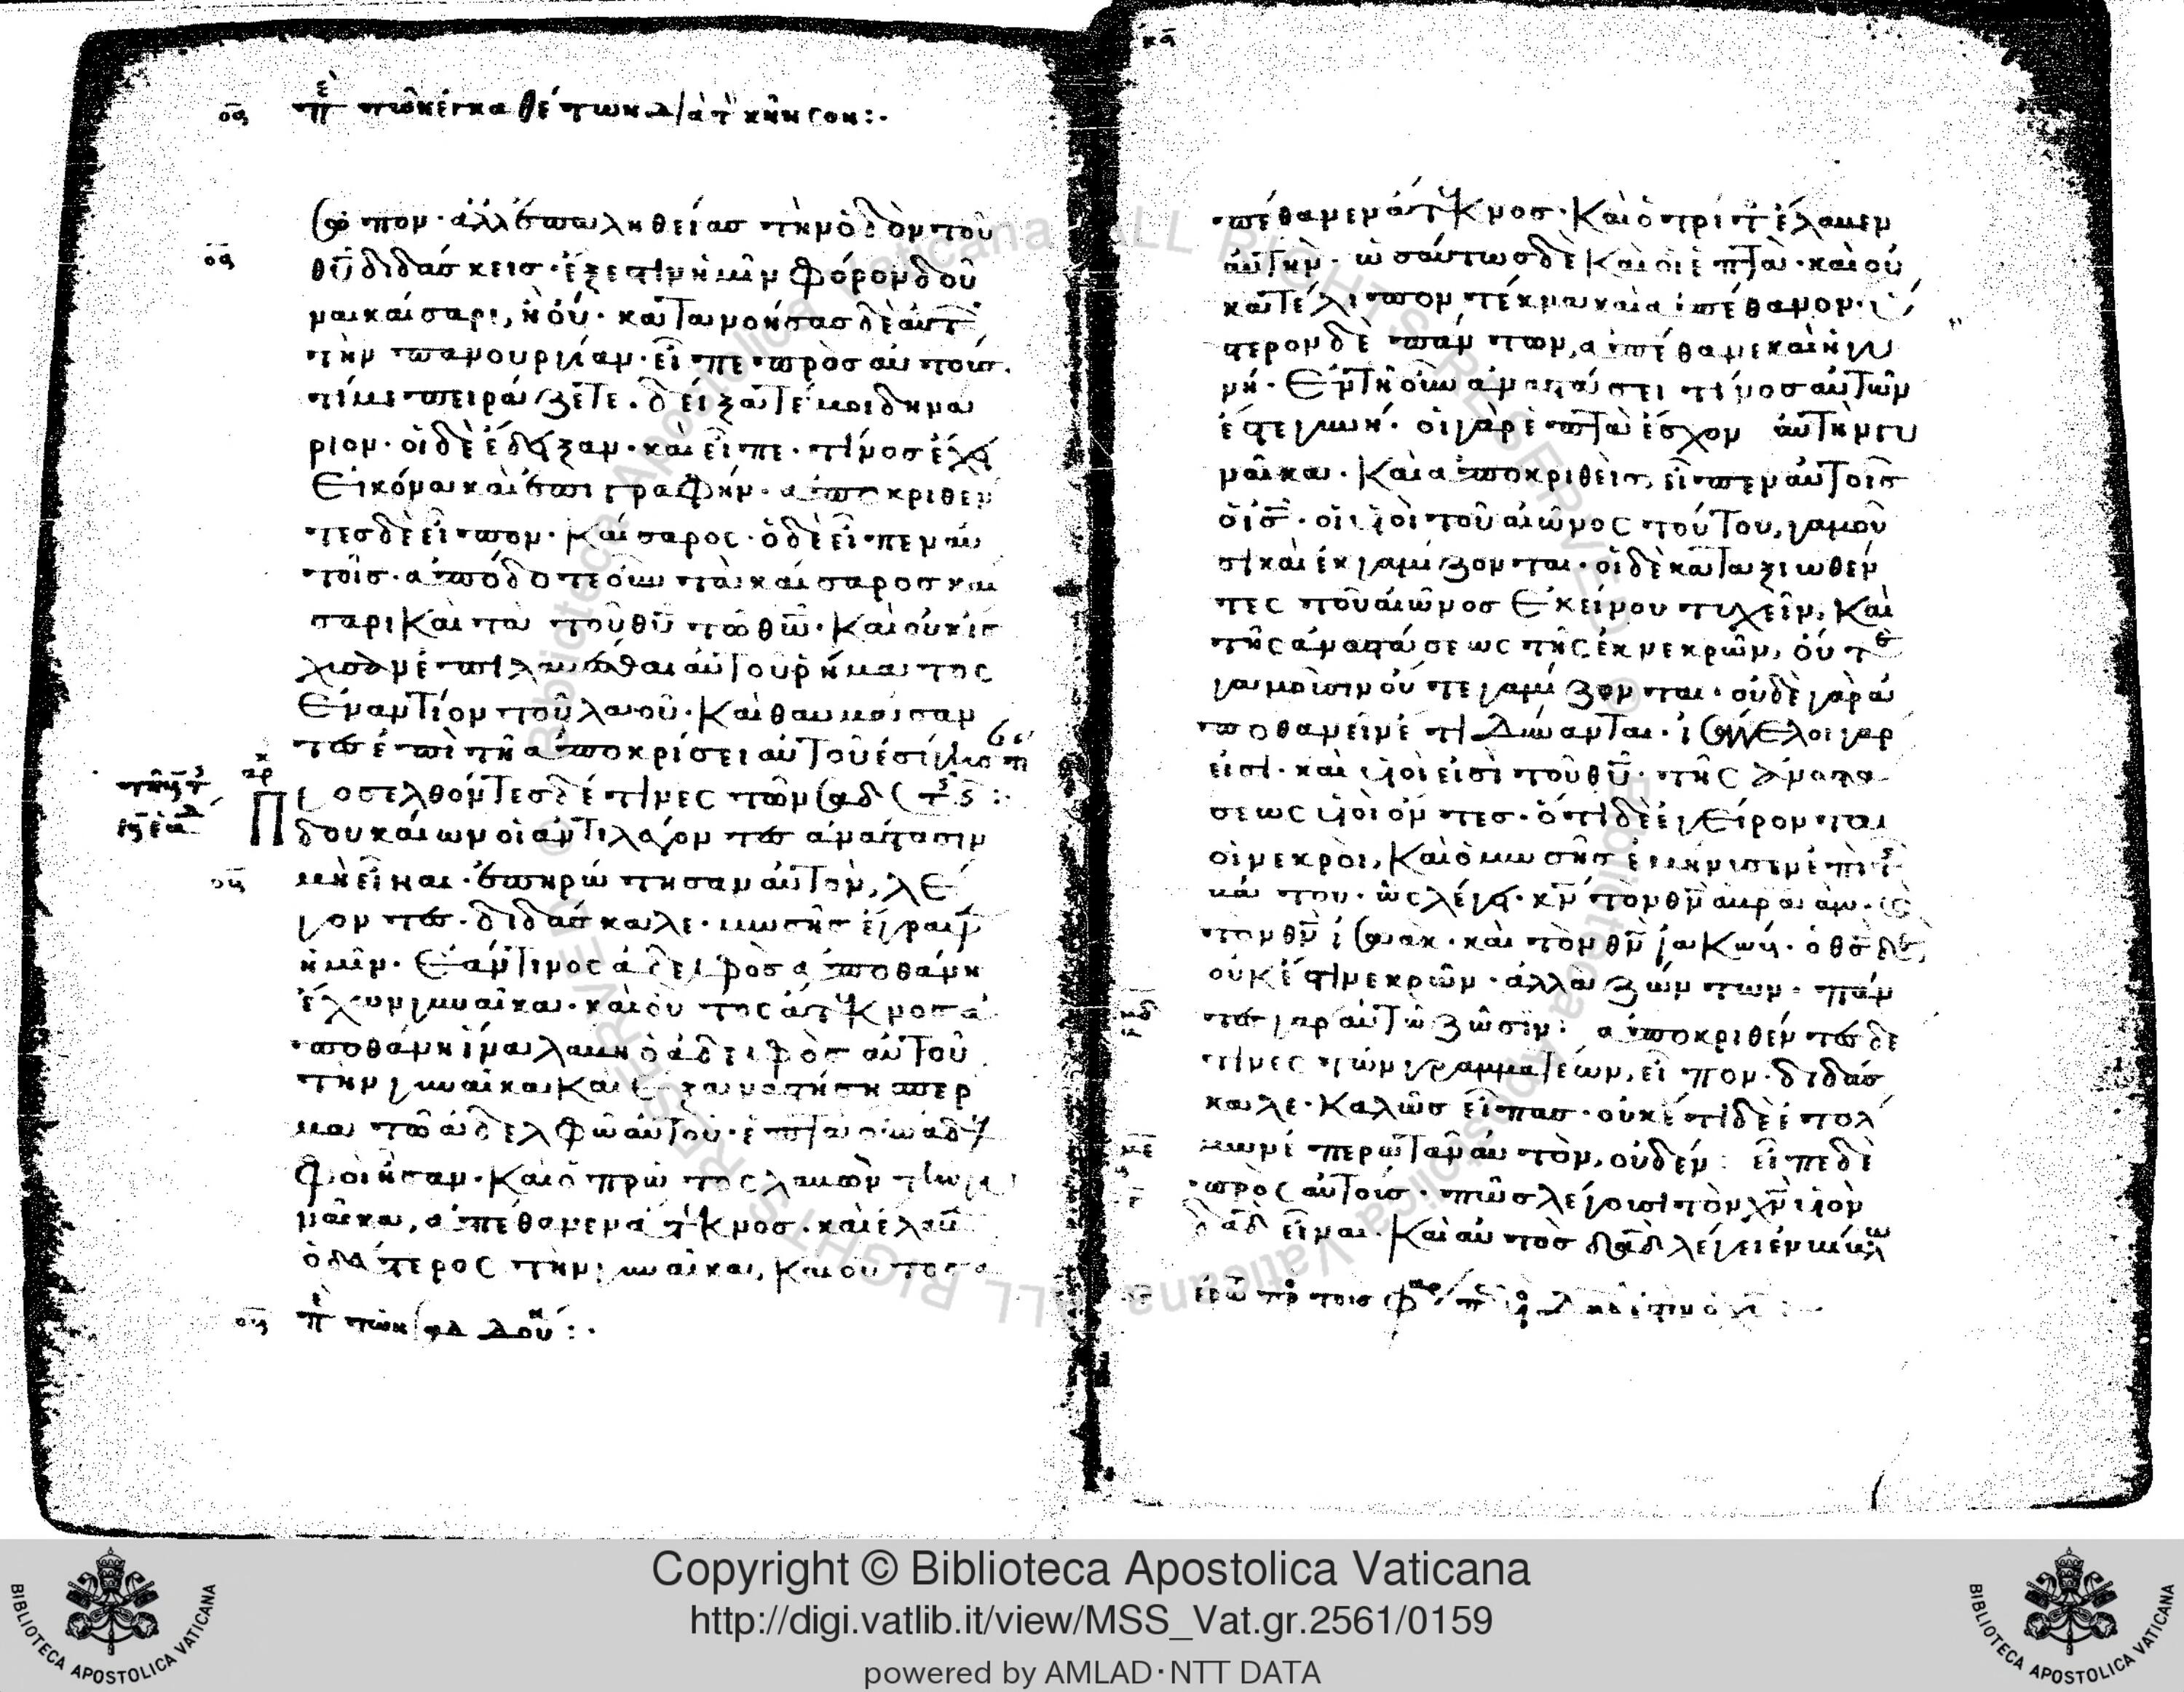 οϛ πε των εγκαθετων δια τ κηνσον :·
σωπον· ἀλλ' ἐπ' ἀληθείασ τὴν ὁδὸν τοῦ
θῦ διδάσκεισ· ἔξεστιν ἡμῖν φόρον δοῦ
ναι καίσαρι, ἢ οὔ· κατανοήσασ δὲ αὐτ
τὴν πανουργίαν· εἶπε πρὸσ αὐτούσ·
τί με πειράζετε. δείξατέ μοι δηνά
ριον· οἱ δὲ ἔδειξαν· καὶ εἶπε· τίνοσ ἔχει
Εἰκόνα καὶ ἐπιγραφήν· ἀποκριθέν
τεσ δὲ εἶπον· Καίσαρος· ὁ δὲ εἶπεν αὐ
τοῖσ· ἀπόδοτε οὖν τὰ καίσαροσ καί
σαρι Καὶ τὰ τοῦ θῦ τῶ θῶ· Καὶ οὐκ ἴσ
χυσαν ἐπιλαβέσθαι αὐτοῦ ῥήματος
Εναντίον τοῦ λαοῦ· Καὶ θαυμάσαν
τεσ ἐπὶ τῆ ἀποκρίσει αὐτοῦ ἐσίγησαν
Προσελθόντεσ δέ τινες τῶν σαδ
δουκαίων οἱ ἀντιλέγοντεσ ἀνάστασιν
μὴ εἶναι· ἐπηρώτησαν αὐτὸν, λέ
γοντεσ· διδάσκαλε· μωσῆσ ἔγραψεν
ἡμῖν· Εάν τινος ἀδελφὸσ ἀποθάνη
ἔχων γυναῖκα· καὶ οὗτος ἄτεκνοσ ἀ
ποθάνη ἵνα λάβη ὁ ἀδελφὸσ αὐτοῦ
τὴν γυναῖκα Καὶ ἐξαναστήση σπέρ
μα τῶ ἀδελφῶ αὐτοῦ· ἑπτὰ οὖν ἀδελ
φοὶ ἦσαν· Καὶ ὁ πρῶτος λαβὼν γυ
ναῖκα, ἀπέθανεν ἄτεκνοσ· καὶ ἔλαβεν
ὁ δεύτερος τὴν γυναῖκα, Καὶ οὗτος ἀ
οη πε των σαδδου :·
πέθανεν ἄτεκνοσ· Καὶ ὁ τρίτ ἔλαβεν
αὐτὴν· ὡσαύτωσ δὲ Καὶ οἱ ἑπτὰ· καὶ οὐ
κατέλιπον τέκνα καὶ ἀπέθανον· ὕ
στερον δὲ πάντων, ἀπέθανε καὶ ἡ γυ
νή· Εν τῆ οὖν ἀναστάσει τίνοσ αὐτῶν
ἔσται γυνή· οἱ γὰρ ἑπτὰ ἔσχον αὐτὴν γυ
ναῖκα· Καὶ ἀποκριθεὶσ, εἶπεν αὐτοῖσ
ὁ ἰσ· οἱ υἱοὶ τοῦ αἰῶνος τούτου, γαμοῦ
σι καὶ ἐκγαμίζονται· οἱ δὲ καταξιωθέν
τες τοῦ αἰῶνοσ Εκείνου τυχεῖν, Καὶ
τῆς ἀναστάσεως τῆς ἐκ νεκρῶν, οὔτε
γαμοῦσιν οὔτε γαμίζονται· οὐδὲ γὰρ ἀ
ποθανεῖν ἔτι δύνανται· ἰσάγγελοι γάρ
εἰσι· καὶ υἱοί εἰσι τοῦ θῦ· τῆς ἀναστά
σεως υἱοὶ ὄντεσ· ὅτι δὲ ἐγείρονται
οἱ νεκροὶ, Καὶ ὁ μωσῆσ ἐμήνυσεν ἐπὶ τ
βάτου· ὡς λέγει· κν τὸν θν ἀβραάμ·
τὸν θν ἰσαακ· καὶ τὸν θν ἰακώβ· ὁ θσ δὲ
οὐκ ἔστι νεκρῶν· ἀλλὰ ζώντων· πάν
τεσ γὰρ αὐτῶ ζῶσιν: ἀποκριθέντεσ δέ
τινες τῶν γραμματέων, εἶπον· διδάσ
καλε· Καλῶσ εἶπασ· οὐκέτι δὲ ἐτόλ
μων ἐπερωτᾶν αὐτὸν, οὐδέν: εἶπε δὲ
πρὸς αὐτούσ· πῶσ λέγουσι τὸν χν υἱὸν
δαδ εἶναι· Καὶ αὐτὸσ δαδ λέγει ἐν βίβλω